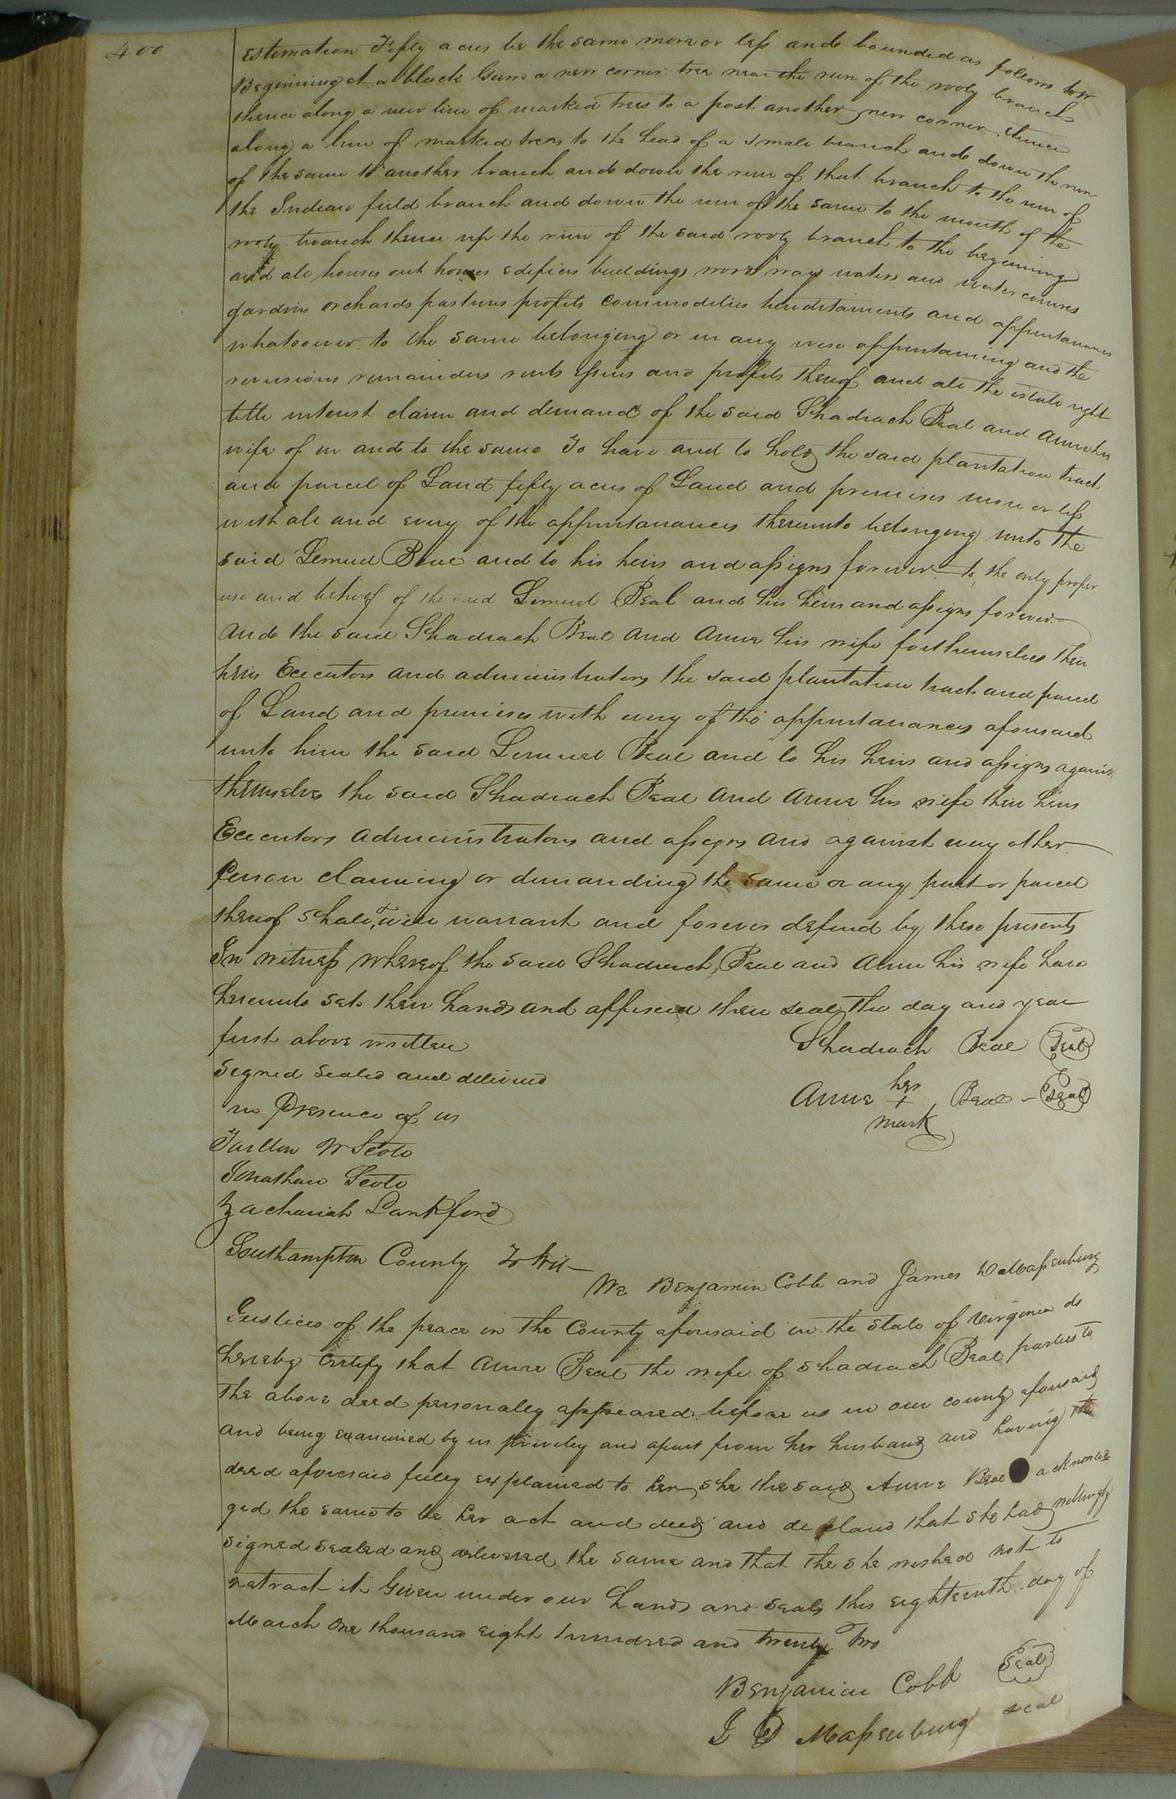 400
estimation Fifty acres be the same more or less and bounded as follows towit
Beginning at a black Gum a new corner tree near the run of the rooty branch
thence along a new line of marked trees to a post another new corner thence
along a line of marked trees to the head of a small branch and down the run
of the same to another branch and down the run of that branch to the run of
the Indian field branch and down the run of the same to the mouth of the
rooty branch thence up the run of the said rooty branch to the beginning
and all houses out houses edifices buildings woods ways waters and water courses
gardins orchards pastures profits commodities hereditaments and appurtanances
whatsoever to the same belonging or in any wise appurtaining and the
reversions remainders rents issues and profits thereof and all the estate right
title interest claim and demand of the said Shadrach Beal and Anne his
wife of in and to the same To have and to hold the said plantation track
and parcel of Land fifty acres of Land and premises more or less
with all and every of the appurtanances thereunto belonging unto the
said Lemuel Beal and to his heirs and assigns forever to the only proper
use and behoof of the said Lemuel Beal and his heirs and assigns forever
and the said Shadrach Beal and Anne his wife for themselves their
heirs Executors and administrators the said plantation track and parcel
of Land and premises with every of the appurtanances aforesaid
unto him the said Lemuel Beal and to his heirs and assigns against
themselves the said Shadrach Beal and Anne his wife their heirs
Executors administrators and assigns and against every other
Person claiming or demanding the same or any part or parcel
thereof shall & will warrant and forever defend by these presents
In witness whereof the said Shadrach Beal and Anne his wife have
hereunto set their hands and affixed their seals the day and year
first above written
Shadrach Beal Seal
Signed sealed and delivered
Anne her + mark Beal - Seal
in Presence of us
Jonathan Scott
Zachariah Lankford
Southampton County To Wit
We Benjamin Cobb and James D Massenburg
Justices of the peace in the County aforesaid in the State of Virginia do
hereby certify that Anne Beal the wife of Shadrach Beal parties to
the above deed personally appeared before us in our county aforesaid
and being examined by us privily and apart from her husband and having the
deed aforesaid fully explained to her she the said Anne Beal acknowle
ged the same to be her act and deed and declared that she had willingly
signed sealed and delivered the same and that the she wished not to
retract it Given under our hands and seals this eighteenth day of
March one thousand eight hundred and twenty two
Benjamin Cobb Seal
J D Massenburg seal